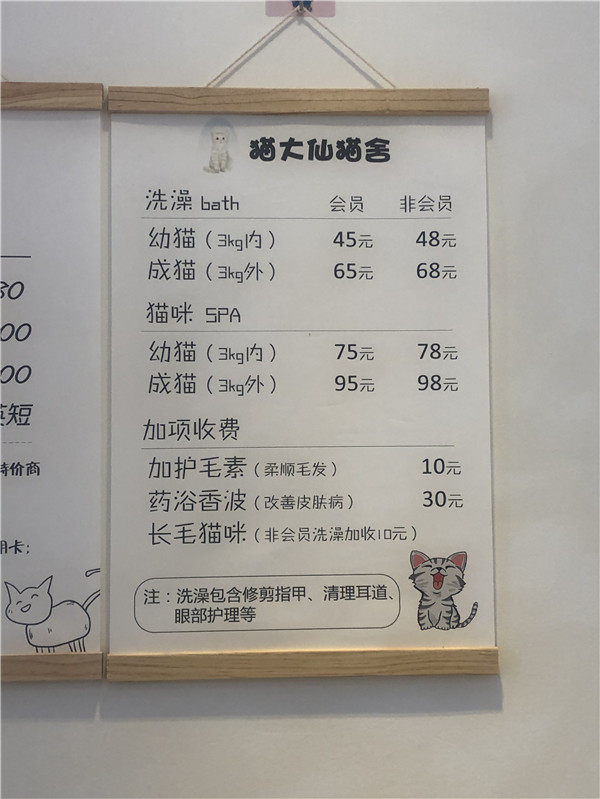 猫大仙猫舍
洗澡 bath 会员 非会员
幼猫（3kg内） 45元 48元
成猫（3kg外） 65元 68元
猫咪 SPA
幼猫（3kg内） 75元 78元
成猫（3kg外） 95元 98元
加项收费
加护毛素（柔顺毛发） 10元
药浴香波（改善皮肤病） 30元
长毛猫咪（非会员洗澡加收10元）
注：洗澡包含修剪指甲、清理耳道、
眼部护理等
00
00
英短
特价商
用卡：